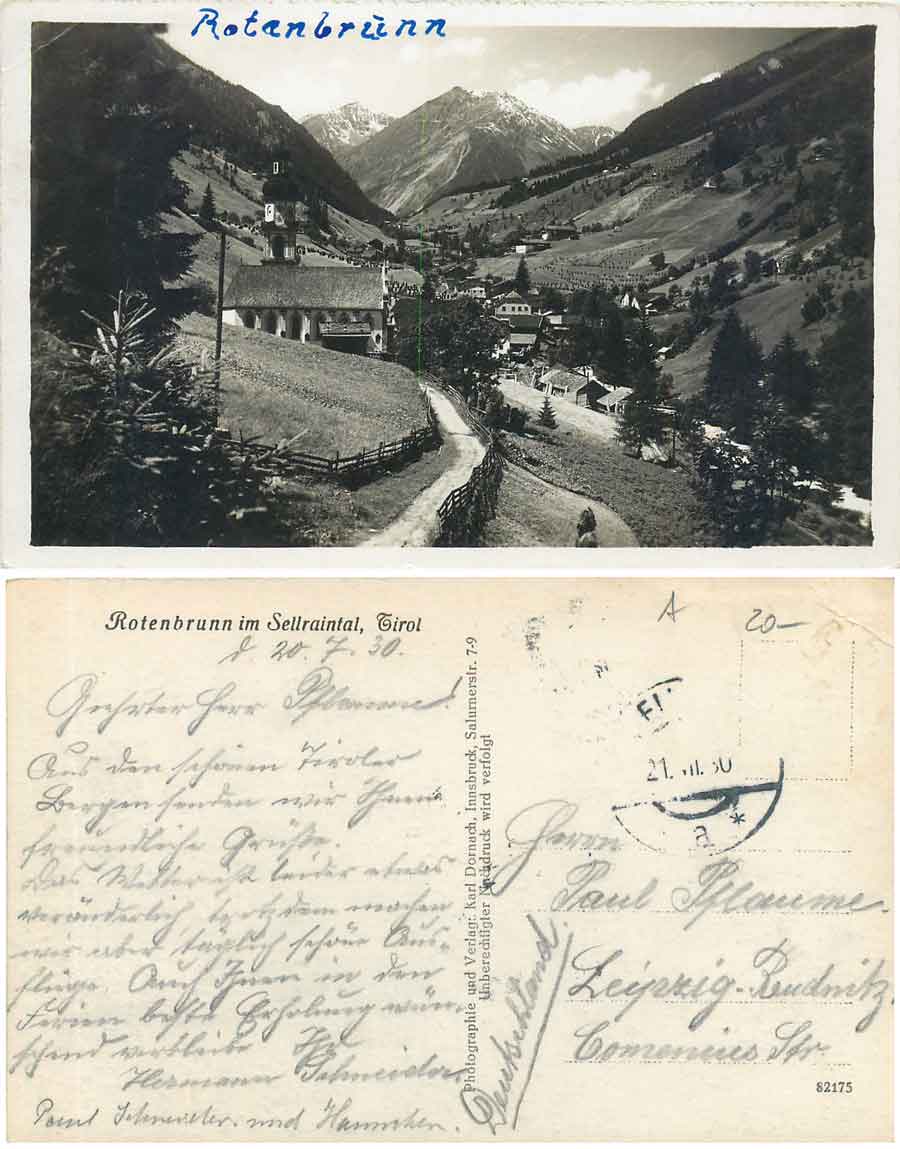 Rotenbrunn
Rotenbrunn im Sellraintal, Tirol
d. 20. 7. 30.
Geehrter Herr Pflaume!
Aus den schönen Tiroler
Bergen senden wir Ihnen
freundliche Grüße.
Das Wetter ist leider etwas
veränderlich trotzdem machen
wir aber täglich schöne Aus-
flüge. Auch Ihnen in den
Ferien beste Erholung wün-
schend verbleibe Ihr
Hermann Schneider.
Schneider und Hannchen.
Photographie und Verlag: Karl Dornach, Innsbruck, Salurnerstr. 7-9
Unberechtigter Nachdruck wird verfolgt
A
20-
21. VII. 30
a *
Herrn
Paul Pflaume.
Leipzig-Reudnitz,
Comenius Str.
Deutschland.
82175